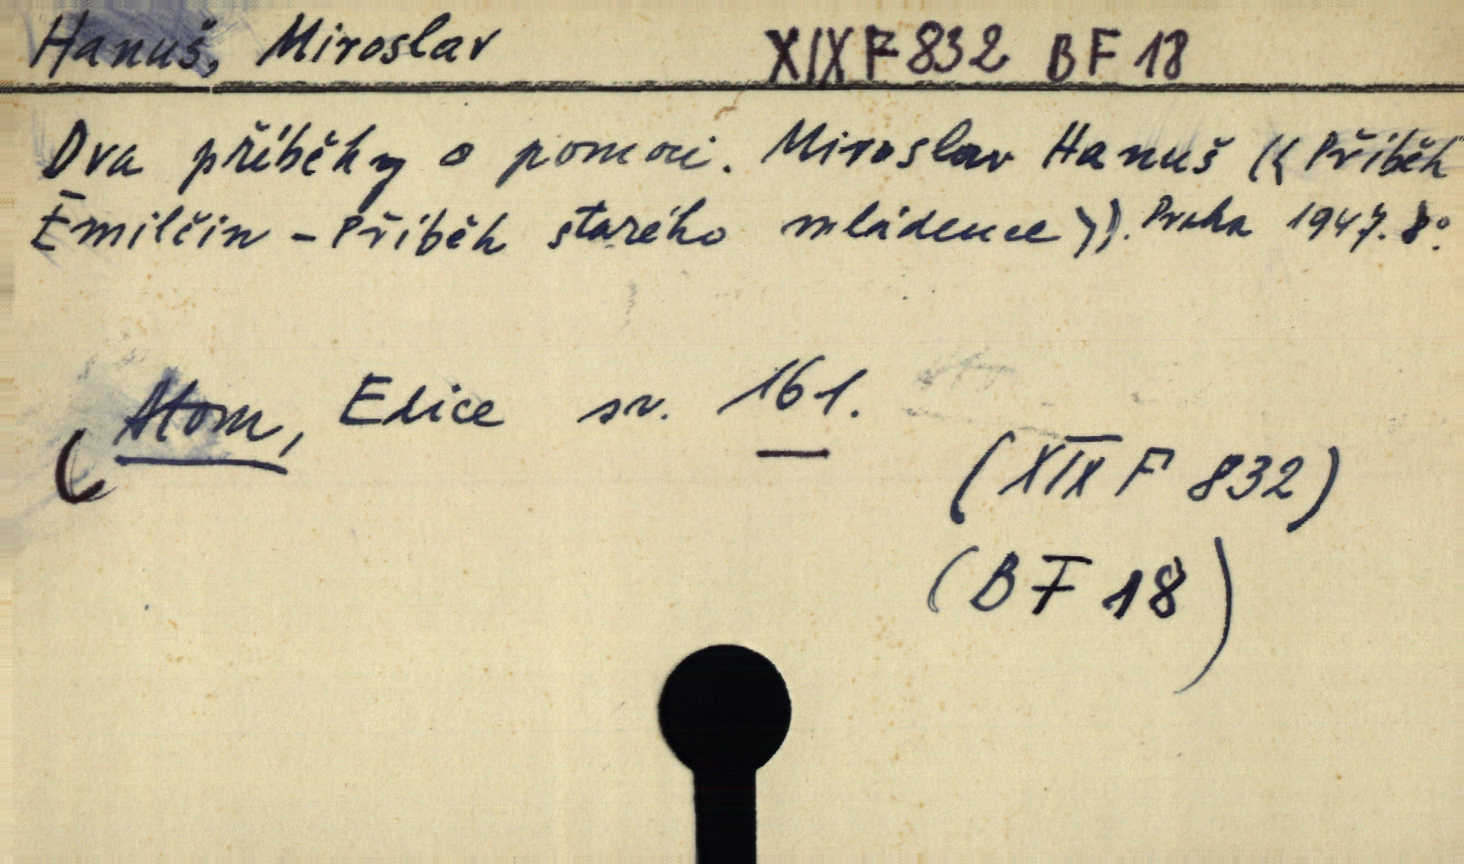 Hanuš, Miroslav XIX F 832 BF 18
Dva příběhy o pomoci. Miroslav Hanuš (⟨Příběh
Emilčin - Příběh starého mládence⟩). Praha 1947. 8°.
Atom, Edice sv. 161.
(XIX F 832)
(BF 18)